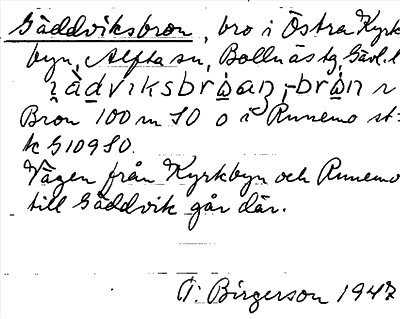 Gäddviksbron, bro i Östra Kyrk
byn, Alfta sn, Bollnäs tg Gävl. l
Bron 100 m SO o i Runemo st.
k G109 SO.
Vägen från Kyrkbyn och Runemo
till Gäddvik går där.
T. Birgerson 1947